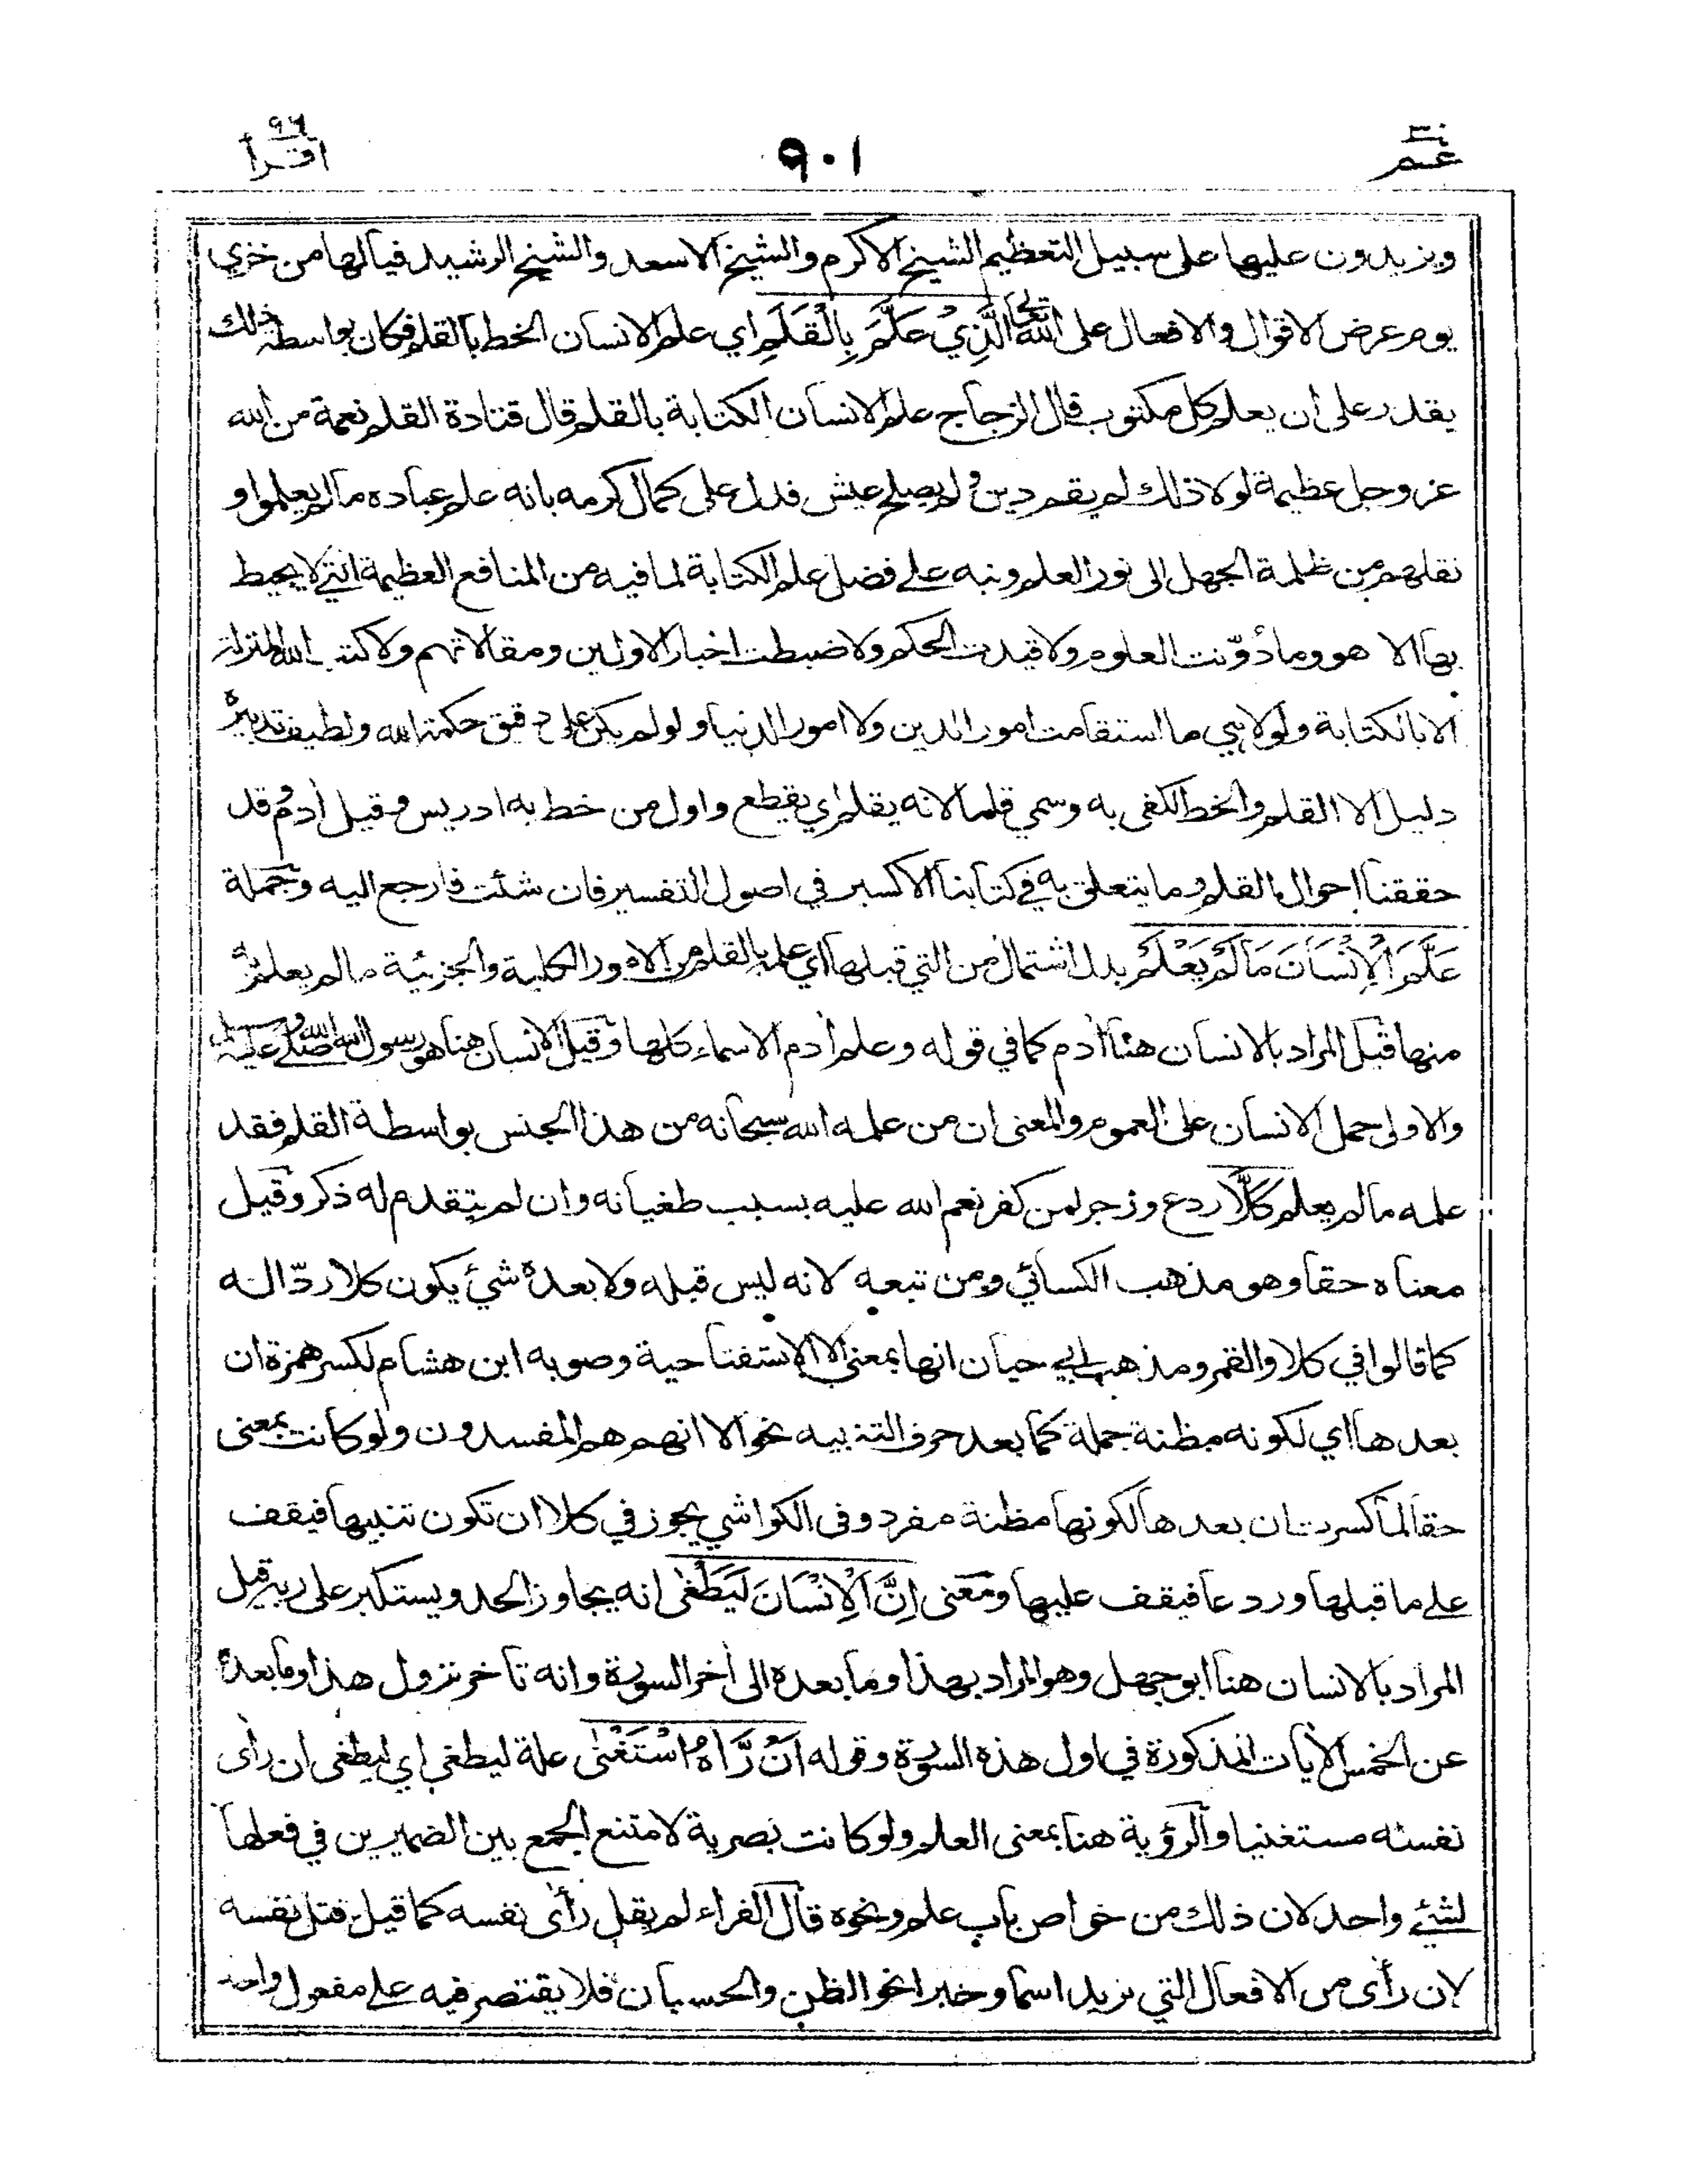 عم ٣٠
٩٠١
اقرأ ٩٦
ويزيدون عليها على سبيل التعظيم الشيخ الاكرم والشيخ الاسعد والشيخ الرشيد فيا لها من خزي
يوم عرض الاقوال والافعال على الله تعالى الَّذِيْ عَلَّمَ بِالْقَلَمِ اي علم الانسان الخط بالقلم فكان بواسطة ذلك
يقدر على أن يعلم كل مكتوب قال الزجاج علم الانسان الكتابة بالقلم قال قتادة القلم نعمة من الله
عز وجل عظيمة لولا ذلك لم يقم دين ولم يصلح عيش فدل على كمال كرمه بانه علم عباده ما لم يعلموا و
نقلهم من ظلمة الجهل الى نور العلم ونبه على فضل علم الكتابة لما فيه من المنافع العظيمة التي لا يحيط
بها الا هو وما دوّنت العلوم ولا قيدت الحكم ولا ضبطت اخبار الاولين ومقالاتهم ولا كتب الله المنزلة
الا بالكتابة ولولا هي ما استقامت امور الدين ولا امور الدنيا ولو لم يكن على دقيق حكمة الله ولطيف تدبيره
دليل الا القلم والخط لكفى به وسمي قلما لانه يقلم اي يقطع واول من خط به ادريس وقيل أدم وقد
حققنا احوال القلم وما يتعلق به في كتابنا الاكسير في اصول التفسير فان شئت فارجع اليه وجملة
عَلَّمَ الْإِنْسَانَ مَا لَمْ يَعْلَمْ بدل اشتمال من التي قبلها اي علمه بالقلم من الامور الكلية والجزئية ما لم يعلم به
منها قيل المراد بالانسان هنا أدم كما في قوله وعلم أدم الاسماء كلها وقيل الانسان هنا هو رسول الله صلى الله عليه وسلم
والاولى حمل الانسان على العموم والمعنى ان من علمه الله سبحانه من هذا الجنس بواسطة القلم فقد
علمه ما لم يعلم كَلَّا ردع وزجر لمن كفر نعم الله عليه بسبب طغيانه وان لم يتقدم له ذكر وقيل
معناه حقا وهو مذهب الكسائي ومن تبعه لانه ليس قبله ولا بعده شيئ يكون كلا ردّا له
كما قالوا في كلا والقمر ومذهب ابي حيان انها بمعنى الا الاستفتاحية وصوبه ابن هشام لكسر همزة ان
بعدها اي لكونه مظنة جملة كما بعد حرف التنبيه نحو الا انهم هم المفسدون ولو كانت بمعنى
حقا لما كسرت ان بعدها لكونها مظنة مفرد وفى الكواشي يجوز في كلا ان تكون تنبيها فيقف
على ما قبلها وردعا فيقف عليها ومعنى اِنَّ الْاِنْسَانَ لَيَطْغٰى انه يجاوز الحد ويستكبر على ربه قيل
المراد بالانسان هنا ابو جهل وهو المراد بهذا وما بعده الى أخر السورة وانه تأخر نزول هذا وما بعده
عن الخمس الأيات المذكورة في اول هذه السورة وقوله اَنْ رَّاٰهُ اسْتَغْنٰى علة ليطغى اي ليطغى ان رأى
نفسه مستغنيا والرؤية هنا بمعنى العلم ولو كانت بصرية لامتنع الجمع بين الضميرين في فعلها
لشئ واحد لان ذلك من خواص باب علم ونحوه قال الفراء لم يقل رأى نفسه كما قيل قتل نفسه
لان رأى من الافعال التي تريد اسما وخبرا نحو الظن والحسبان فلا يقتصر فيه على مفعول واحد